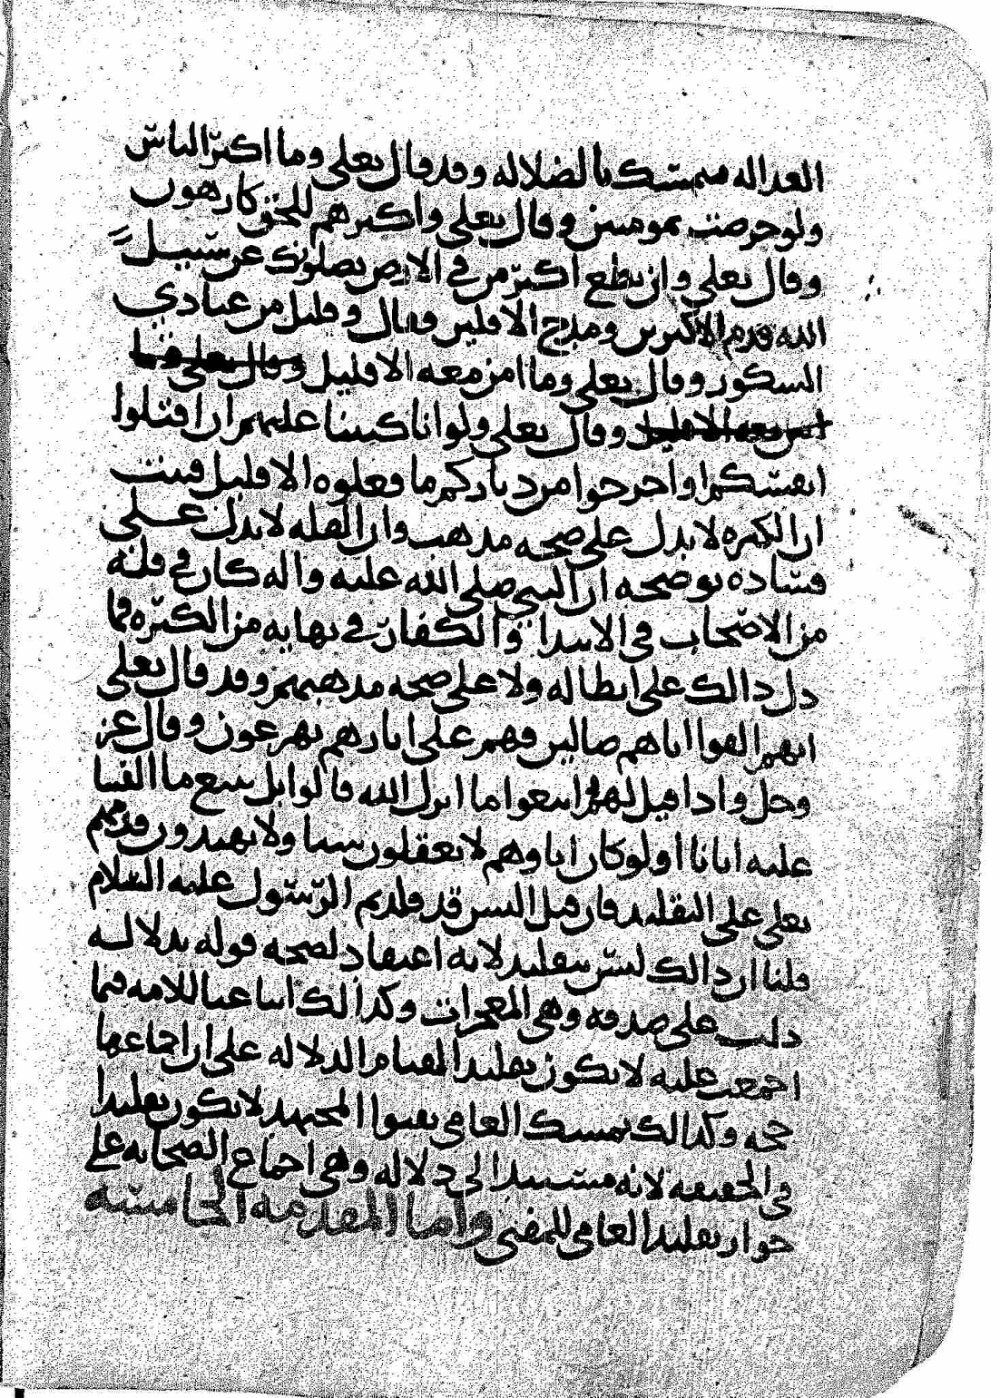 العداله متمسك بالضلاله وقد قال تعلى وما اكثر الناس
ولو حرصت بمومنين وقال تعلى واكثرهم للحق كارهون
وقال تعلى وان تطع اكثر من في الارض يضلوك عن سبيل
الله فذم الاكثرين ومدح الاقلين فقال وقليل من عبادي
الشكور وقال تعلى وما امن معه الا قليل وقال تعلى وما
امن معه الا قليل وقال تعلى ولو انا كتبنا عليهم ان اقتلوا
انفسكم او اخرجوا من دياركم ما فعلوه الا قليل فثبت
ان الكثره لا تدل على صحه مذهب وان القله لا تدل على
فساده يوضحه ان النبي صلى الله عليه واله كان في قله
من الاصحاب في الابتدا والكفار في نهايه من الكثره فما
دل ذالك على ابطاله ولا على صحه مذهبهم وقد قال تعلى
انهم الفوا اباهم ضالين فهم على اثارهم يهرعون وقال عز
وجل واذا قيل لهم اتبعوا ما انزل الله قالوا بل نتبع ما الفينا
عليه ابانا اولو كان اباوهم لا يعقلون شيا ولا يهتدون فذمهم
تعلى على التقليد فان قيل اليس قد قلدتم الرسول عليه السلام
قلنا ان ذالك ليس بتقليد لانه اعتقاد لصحه قوله بدلاله
دلت على صدقه وهي المعجزات وكذالك اتباعنا للامه فيما
اجمعت عليه لا يكون تقليدا لقيام الدلاله على ان اجماعها
حجه وكذالك تمسك العامي بفتوا المجتهد لا يكون تقليدا
في الحقيقه لانه مستند الى دلاله وهي اجماع الصحابه على
جواز تقليد العامي للمفتي واما المقدمه الخامسه